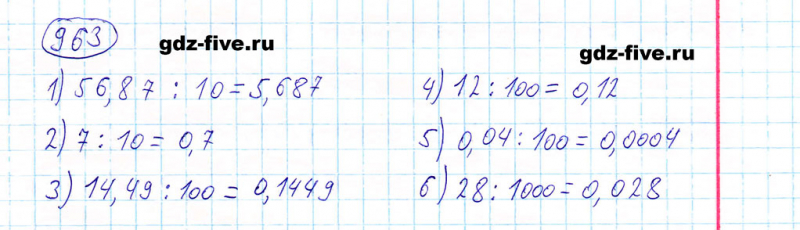 963
gdz-five.ru
gdz-five.ru
1) 56,87 : 10 = 5,687
2) 7 : 10 = 0,7
3) 14,49 : 100 = 0,1449
4) 12 : 100 = 0,12
5) 0,04 : 100 = 0,0004
6) 28 : 1000 = 0,028